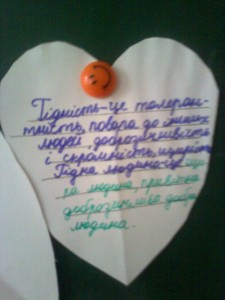 Гідність-це толеран-
тність, повага до інших
людей, доброзичливість
і скромність, щирість.
Гідна людина-це щи-
ра людина, привітна
доброзичлива добра
людина.